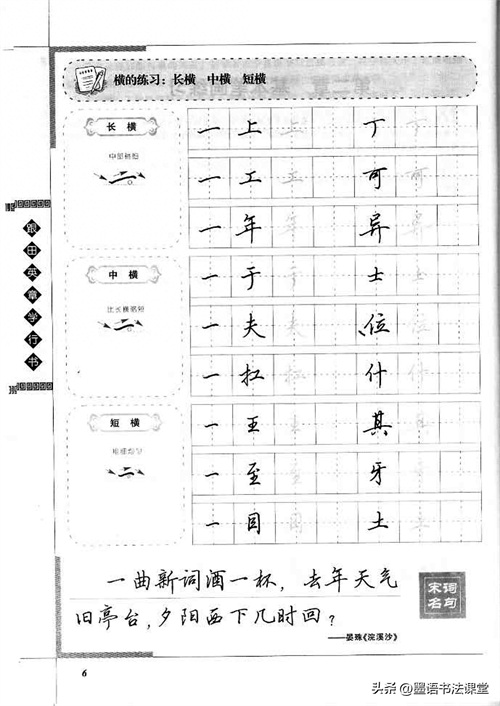 横的练习：长横 中横 短横
长横
一 上 上 丁 丁
一 工 工 可 可
一 年 年 异 异
中横
一 于 于 士 士
一 夫 夫 位 位
一 扛 扛 什 什
短横
一 王 王 其 其
一 至 至 牙 牙
一 目 目 土 土
跟田英章学行书
一曲新词酒一杯，去年天气
旧亭台，夕阳西下几时回？
——晏殊《浣溪沙》
宋词
名句
6
头条@墨语书法课堂